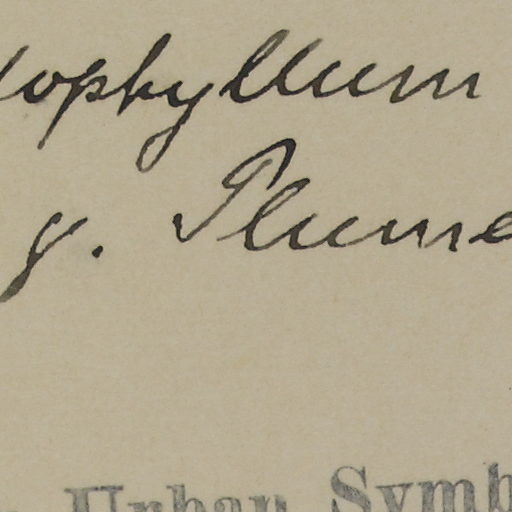 lophyllum
g. Plume
Urban Symb